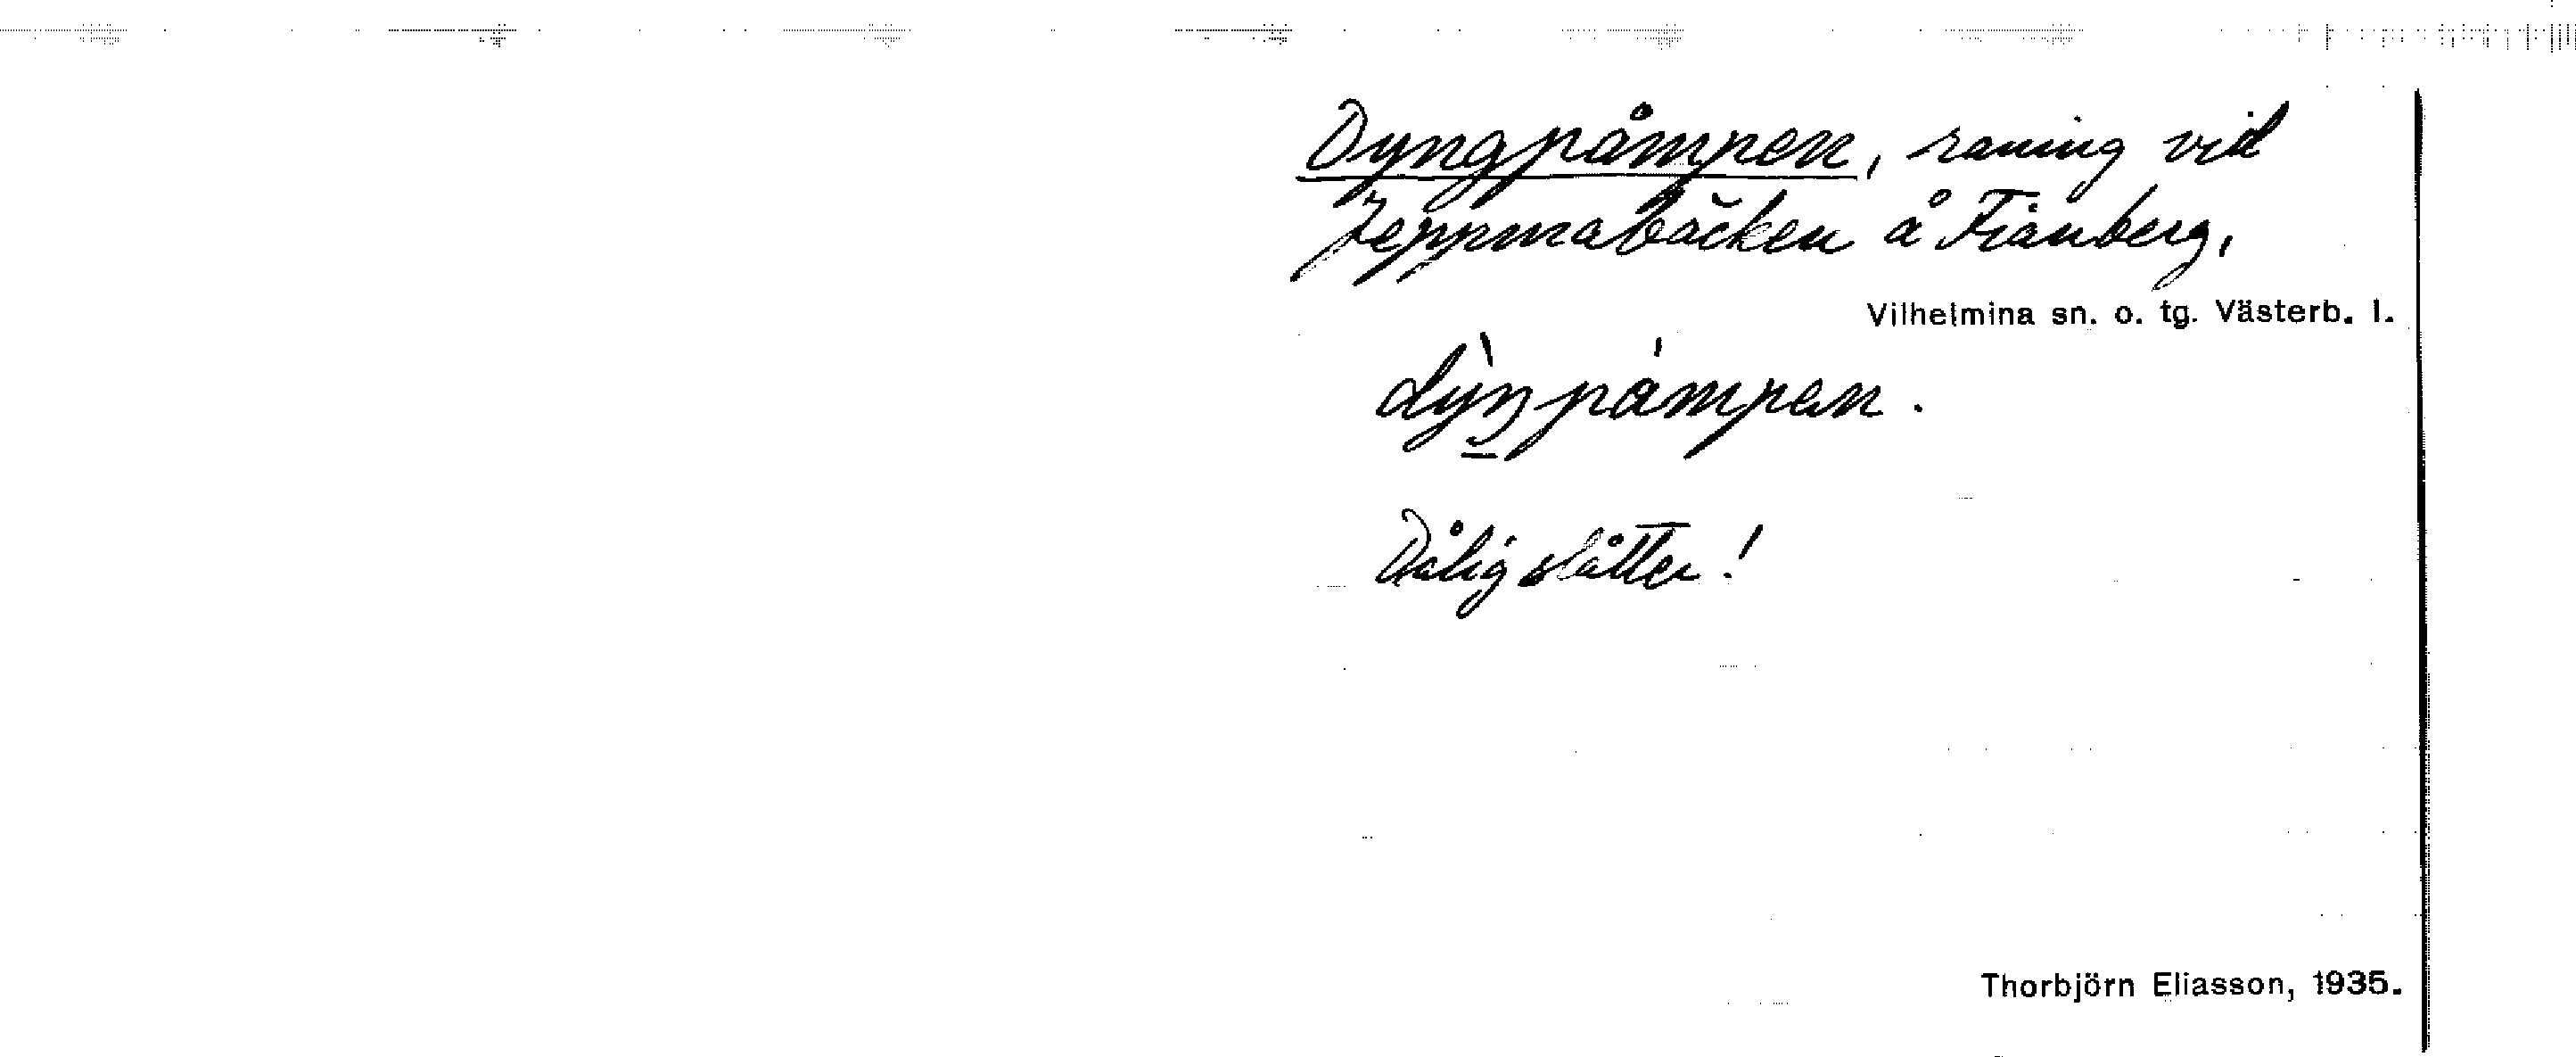 Dyngpåmpen, raning vid
Jeppmabäcken å Fianberg,
Vilhelmina sn. o. tg. Västerb. l.
dỳŋpámpen.
Dålig slåtter!
Thorbjörn Eliasson, 1935.